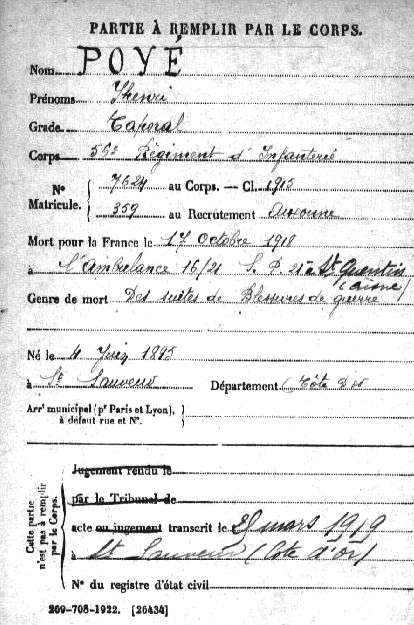 PARTIE À REMPLIR PAR LE CORPS.
Nom POYÉ
Prénoms Henri
Grade Caporal
Corps 55e Régiment d'Infanterie
N° Matricule. { 7624 au Corps. — Cl. 1915
359 au Recrutement Auxonne
Mort pour la France le 17 Octobre 1918
à l'Ambulance 16/21 S. P. 21 à St Quentin
(Aisne)
Genre de mort Des suites de Blessures de guerre
Né le 4 Juin 1895
à St Sauveur Département (Côte d'Or
Arrt municipal (pr Paris et Lyon), à défaut rue et N°. }
Cette partie n'est pas à remplir par le Corps. {
Jugement rendu le
par le Tribunal de
acte ou jugement transcrit le 28 mars 1919
à St Sauveur (Côte d'Or)
N° du registre d'état civil
269-708-1922. [26434]